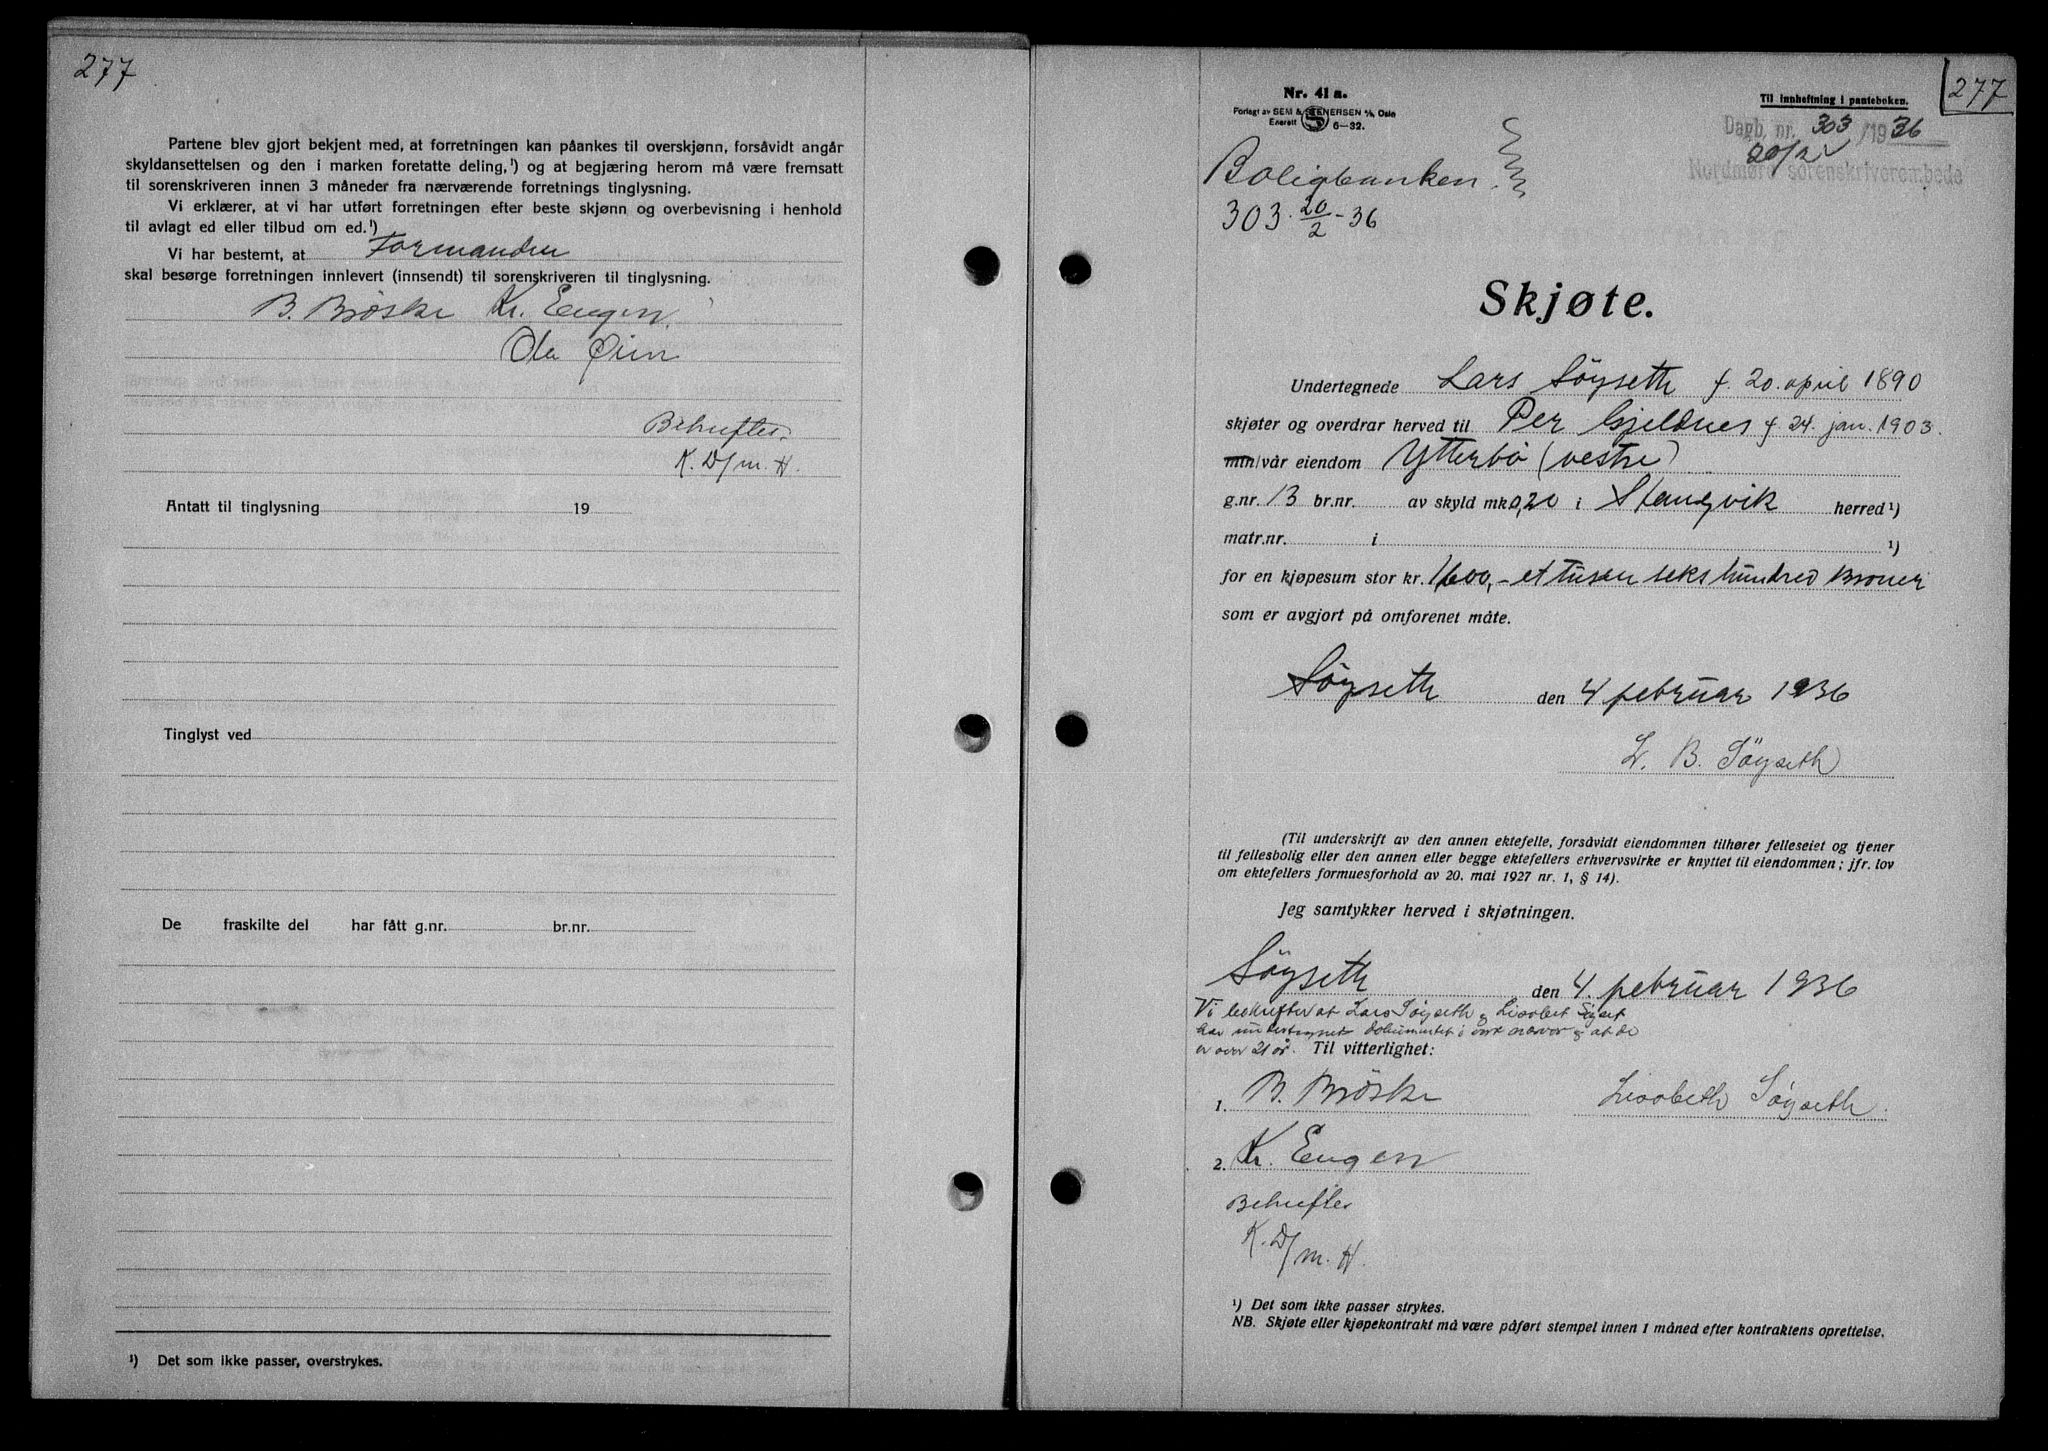 277
Partene blev gjort bekjent med, at forretningen kan påankes til overskjønn, forsåvidt angår
skyldansettelsen og den i marken foretatte deling,¹) og at begjæring herom må være fremsatt
til sorenskriveren innen 3 måneder fra nærværende forretnings tinglysning.
Vi erklærer, at vi har utført forretningen efter beste skjønn og overbevisning i henhold
til avlagt ed eller tilbud om ed.¹)
Vi har bestemt, at Formanden
skal besørge forretningen innlevert (innsendt) til sorenskriveren til tinglysning.
B. Brøske Kr. Engen.
Ola Øien
Bekreftes.
K. D/m. H.
Antatt til tinglysning 19
Tinglyst ved
De fraskilte del har fått g.nr. br.nr.
¹) Det som ikke passer, overstrykes.
277
Nr. 41 a.
Forlagt av SEM & STENERSEN A/S, Oslo
Enerett S 6-32.
Til innheftning i panteboken.
Dagb. nr. 303 / 1936
20/2
Nordmøre sorenskriverembede
Boligbanken.
303. 20/2 - 36
Skjøte.
Undertegnede Lars Söyseth f. 20. april 1890
skjøter og overdrar herved til Per Gjeldnes f. 24. jan. 1903.
min/vår eiendom Ytterbö (vestre)
g.nr. 13 br.nr. av skyld mk. 0,20 i Stangvik herred¹)
matr.nr. i ¹)
for en kjøpesum stor kr. 1600,- et tusen seks hundred kroner
som er avgjort på omforenet måte.
Söyseth den 4 februar 1936
L. B. Söyseth
(Til underskrift av den annen ektefelle, forsåvidt eiendommen tilhører felleseiet og tjener
til fellesbolig eller den annen eller begge ektefellers erhvervsvirke er knyttet til eiendommen; jfr. lov
om ektefellers formuesforhold av 20. mai 1927 nr. 1, § 14).
Jeg samtykker herved i skjøtningen.
Söyseth den 4. februar 1936
Vi bekrefter at Lars Söyseth og Lisabet Söyset
har undertegnet dokumentet i vort nærvær og at de
er over 21 år. Til vitterlighet:
1. B. Bröske Lisabeth Söyseth.
2. Kr. Engen
Bekreftes
K. D/m. H.
¹) Det som ikke passer strykes.
NB. Skjøte eller kjøpekontrakt må være påført stempel innen 1 måned efter kontraktens oprettelse.